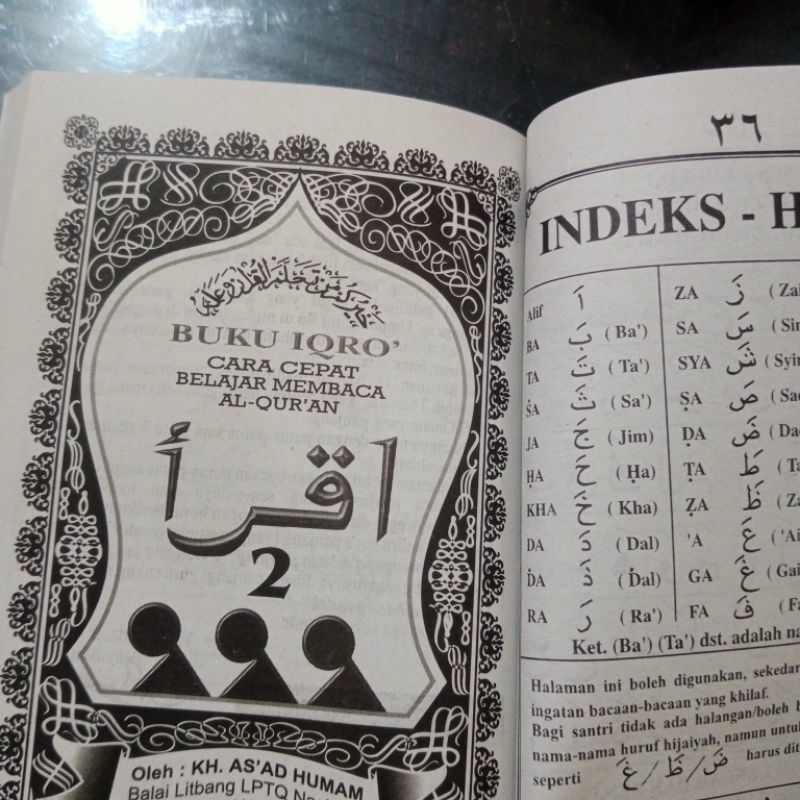 خيركم من تعلم القرآن وعلمه
BUKU IQRO'
CARA CEPAT
BELAJAR MEMBACA
AL-QUR'AN
اقرأ
2
Oleh : KH. AS'AD HUMAM
Balai Litbang LPTQ
٣٦
INDEKS - H
Alif أَ ZA زَ
BA بَ ( Ba') SA سَ
TA تَ ( Ta') SYA شَ
ṠA ثَ ( Sa') ṢA صَ
JA جَ ( Jim) ḌA ضَ
ḤA حَ ( Ḥa) ṬA طَ
KHA خَ ( Kha) ẒA ظَ
DA دَ ( Dal) 'A عَ
ḊA ذَ ( Ḋal) GA غَ
RA رَ ( Ra') FA فَ
Ket. (Ba') (Ta') dst. adalah
Halaman ini boleh digunakan, sekedar
ingatan bacaan-bacaan yang khilaf.
Bagi santri tidak ada halangan/boleh
nama-nama huruf hijaiyah, namun untuk
seperti ضَ / ظَ / غَ harus